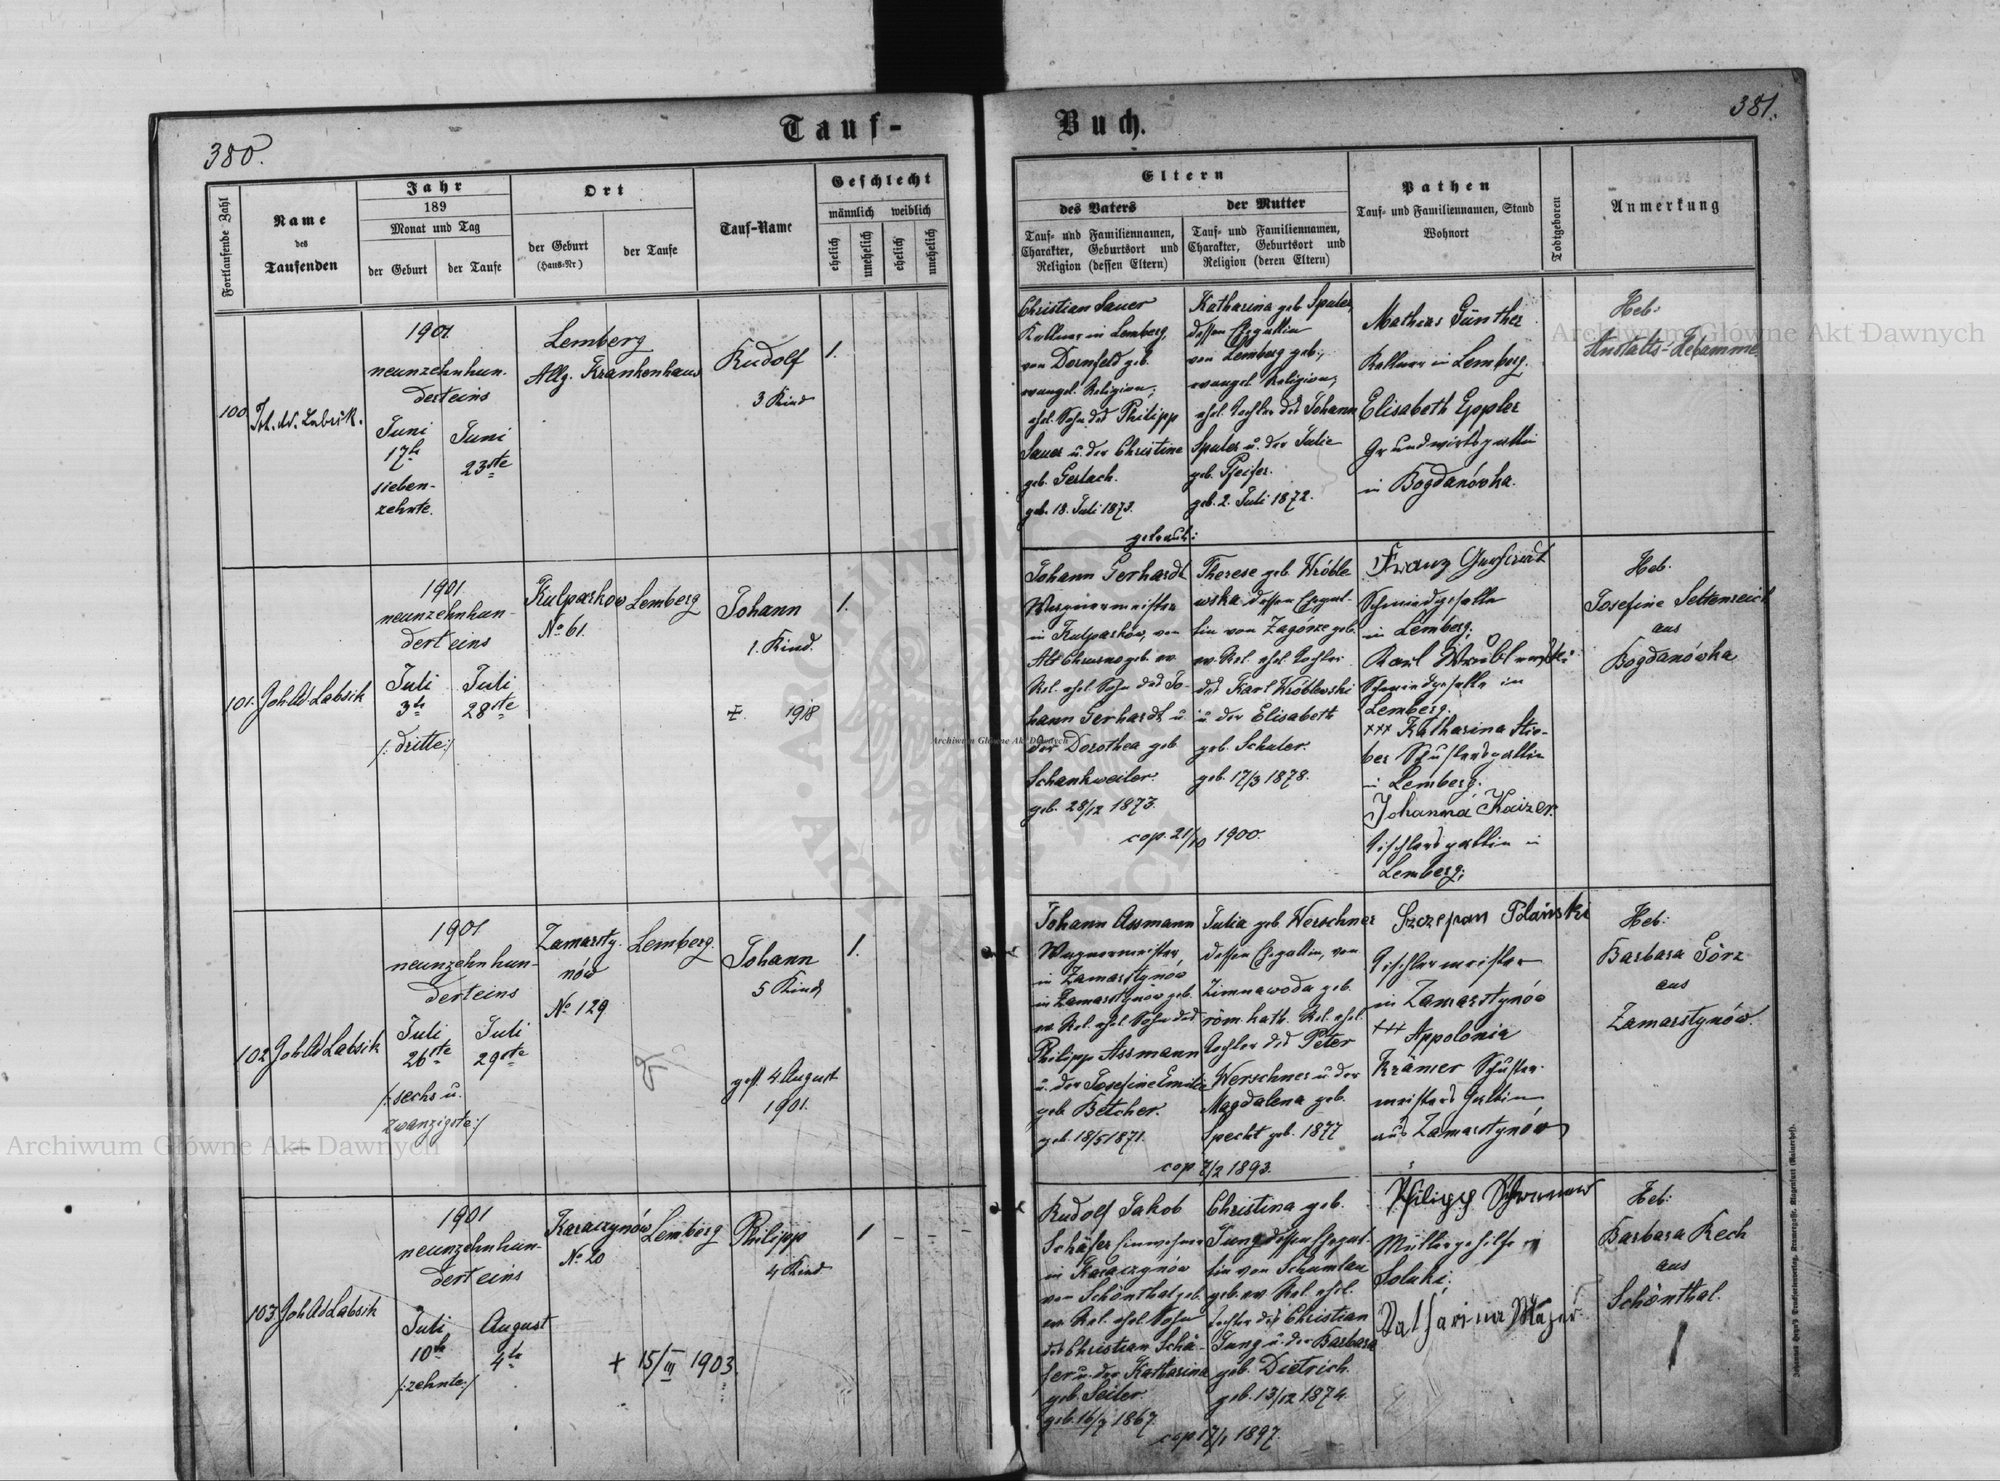 380.
Tauf-
Buch.
381.
Fortlaufende Zahl
Name
des
Taufenden
Jahr
189
Monat und Tag
der Geburt
der Taufe
Ort
der Geburt
(Haus-Nr)
der Taufe
Tauf-Name
Geschlecht
männlich
weiblich
ehelich
unehelich
ehelich
unehelich
Eltern
des Vaters
Tauf- und Familiennamen,
Charakter, Geburtsort und
Religion (dessen Eltern)
der Mutter
Tauf- und Familiennamen,
Charakter, Geburtsort und
Religion (deren Eltern)
Pathen
Tauf- und Familiennamen, Stand
Wohnort
Todtgeboren
Anmerkung
100
1901
neunzehnhun-
derteins
Juni
17te
sieben-
zehnte.
Juni
23ste
Lemberg
Allg. Krankenhaus
Rudolf
3 Kind
1.
Christian Sauer
Kellner in Lemberg,
von Dornfeld geb.
evangel. Religion;
ehel. Sohn des Philipp
Sauer u. der Christine
geb. Gerlach.
geb. 18. Juli 1873.
Katharina geb. Spuler,
dessen Ehegattin
von Lemberg geb.,
evangel. Religion,
ehel. Tochter des Johann
Spuler u. der Julie
geb. Pfeifer.
geb. 2. Juli 1872.
getraut:
Mathias Günther
Kellner in Lemberg.
Elisabeth Eppler
Grundwirthsgattin
in Bogdanówka.
Heb:
Anstalts-Hebamme
101.
Joh Ad Labsik
1901
neunzehnhun-
derteins
Juli
3te
/: dritte :/
Juli
28ste
Kulparkow
No 61.
Lemberg
Johann
1. Kind.
1918
1.
Johann Gerhardt
Wagnermeister
in Kulparków, von
geb. ev.
Rel. ehel. Sohn des Jo-
hann Gerhardt u.
der Dorothea geb
Schankweiler.
geb. 28/12 1873.
Therese geb. Wróble
wska dessen Ehegat-
tin von Zagórze geb.
ev. Rel. ehel. Tochter
des Karl Wróblewski
u. der Elisabeth
geb. Schuler.
geb. 17/3 1878.
cop. 21/10 1900.
Franz
Schmiedgeselle
in Lemberg;
Karl
Schmiedgeselle in
Lemberg.
+++ Katharina Stie-
ber Schustersgattin
in Lemberg.
Johanna Kaizer.
Tischlersgattin in
Lemberg;
Heb.
Josefine Settenreich
aus
Bogdanówka
102
Joh Ad Labsik
1901
neunzehnhun-
derteins
Juli
26ste
/: sechs u.
zwanzigste :/
Juli
29ste
Zamarsty-
nów
No 129
Lemberg.
Johann
5 Kind
gest. 4 August
1901.
1.
Johann Assmann
Wagnermeister,
in Zamarstynów
in Zamarstynów geb.
ev. Rel. ehel. Sohn des
Philipp Assmann
u. der Josefine Emilie
geb. Betcher.
geb. 18/5 1871.
Julia geb. Werschner
dessen Ehegattin, von
Zimnawoda geb.
röm. kath. Rel. ehel.
Tochter des Peter
Werschner u der
Magdalena geb.
Specht geb. 1877
cop 7/2 1893.
Szczepan Polański
Tischlermeister
in Zamarstynów
+++ Appolonia
Krämer Schuster-
meisters Gattin
aus Zamarstynów
Heb:
Barbara Görz
aus
Zamarstynów.
103
Joh Ad Labsik
1901
neunzehnhun-
derteins
Juli
10te
/: zehnte :/
August
4te
Karaczynów
No 20
Lemberg
Philipp
4 Kind
+ 15/III 1903.
1
Rudolf Jakob
Schäfer Einwohner
in Karaczynów
von Schönthal geb.
ev. Rel. ehel. Sohn
des Christian Schä-
fer u. der Katharina
geb. Seiler.
geb. 16/7 1867.
Christina geb.
Jung dessen Ehegat-
tin von Schumlau
geb. ev. Rel. ehel.
Tochter des Christian
Jung u. der Barbara
geb. Dietrich.
geb. 13/12 1874.
cop 17/1 1897.
Müllergehilfe in
Katharina Majer
Heb:
Barbara Kech
aus
Schönthal.
Archiwum Główne Akt Dawnych
Archiwum Główne Akt Dawnych
Archiwum Główne Akt Dawnych